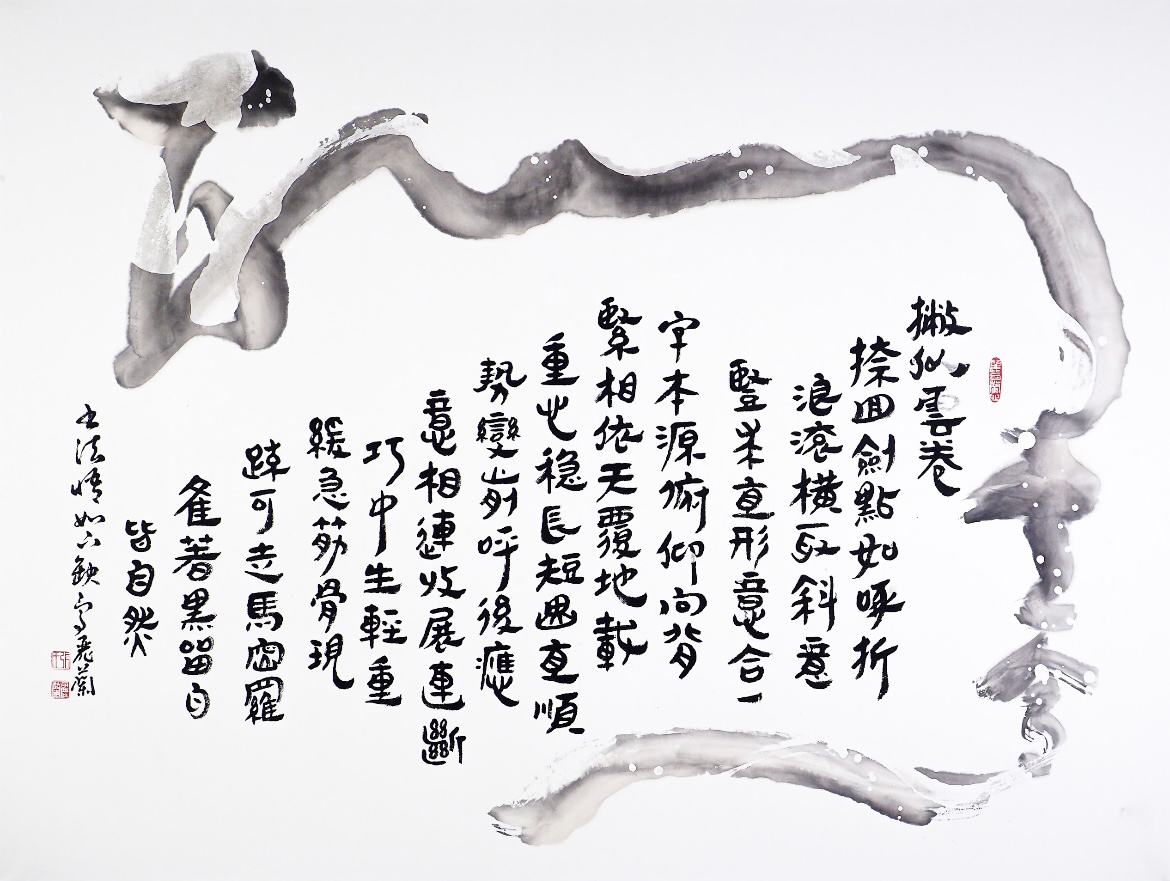 撇似雲卷
捺回劍點如啄折
浪滾橫取斜意
豎米直形意合一
字本源俯仰向背
緊相依天覆地載
重也穩長短過直順
勢變崩呼後應
意相連收展連斷
巧中生輕重
緩急筋骨現
疏可走馬密羅
雀著黑留白
皆自然
書法情如
蘭